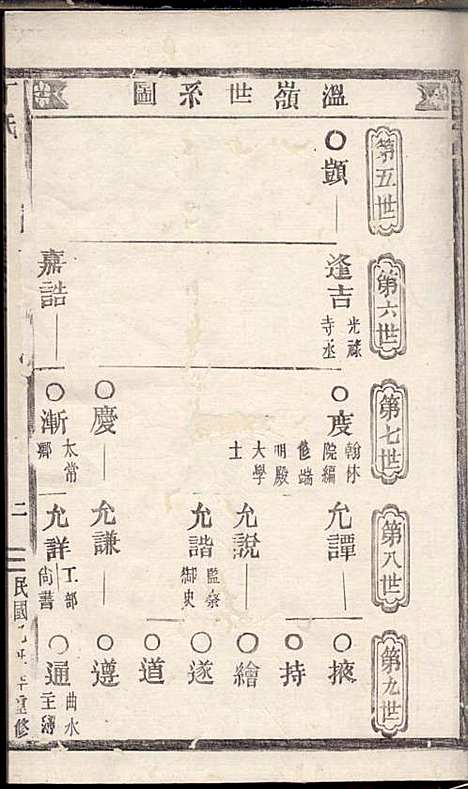 溫嶺世系圖
第五世
○顗
第六世
逢吉 光祿寺丞
嘉誥
第七世
○度 翰林院編修端明殿大學士
○慶
○漸 太常卿
第八世
允譚
允說
允諧 監察御史
允謙
允詳 工部尚書
第九世
○掖
○持
○繪
○遂
○道
○遵
○通 曲水主簿
氏
二
民國
重修